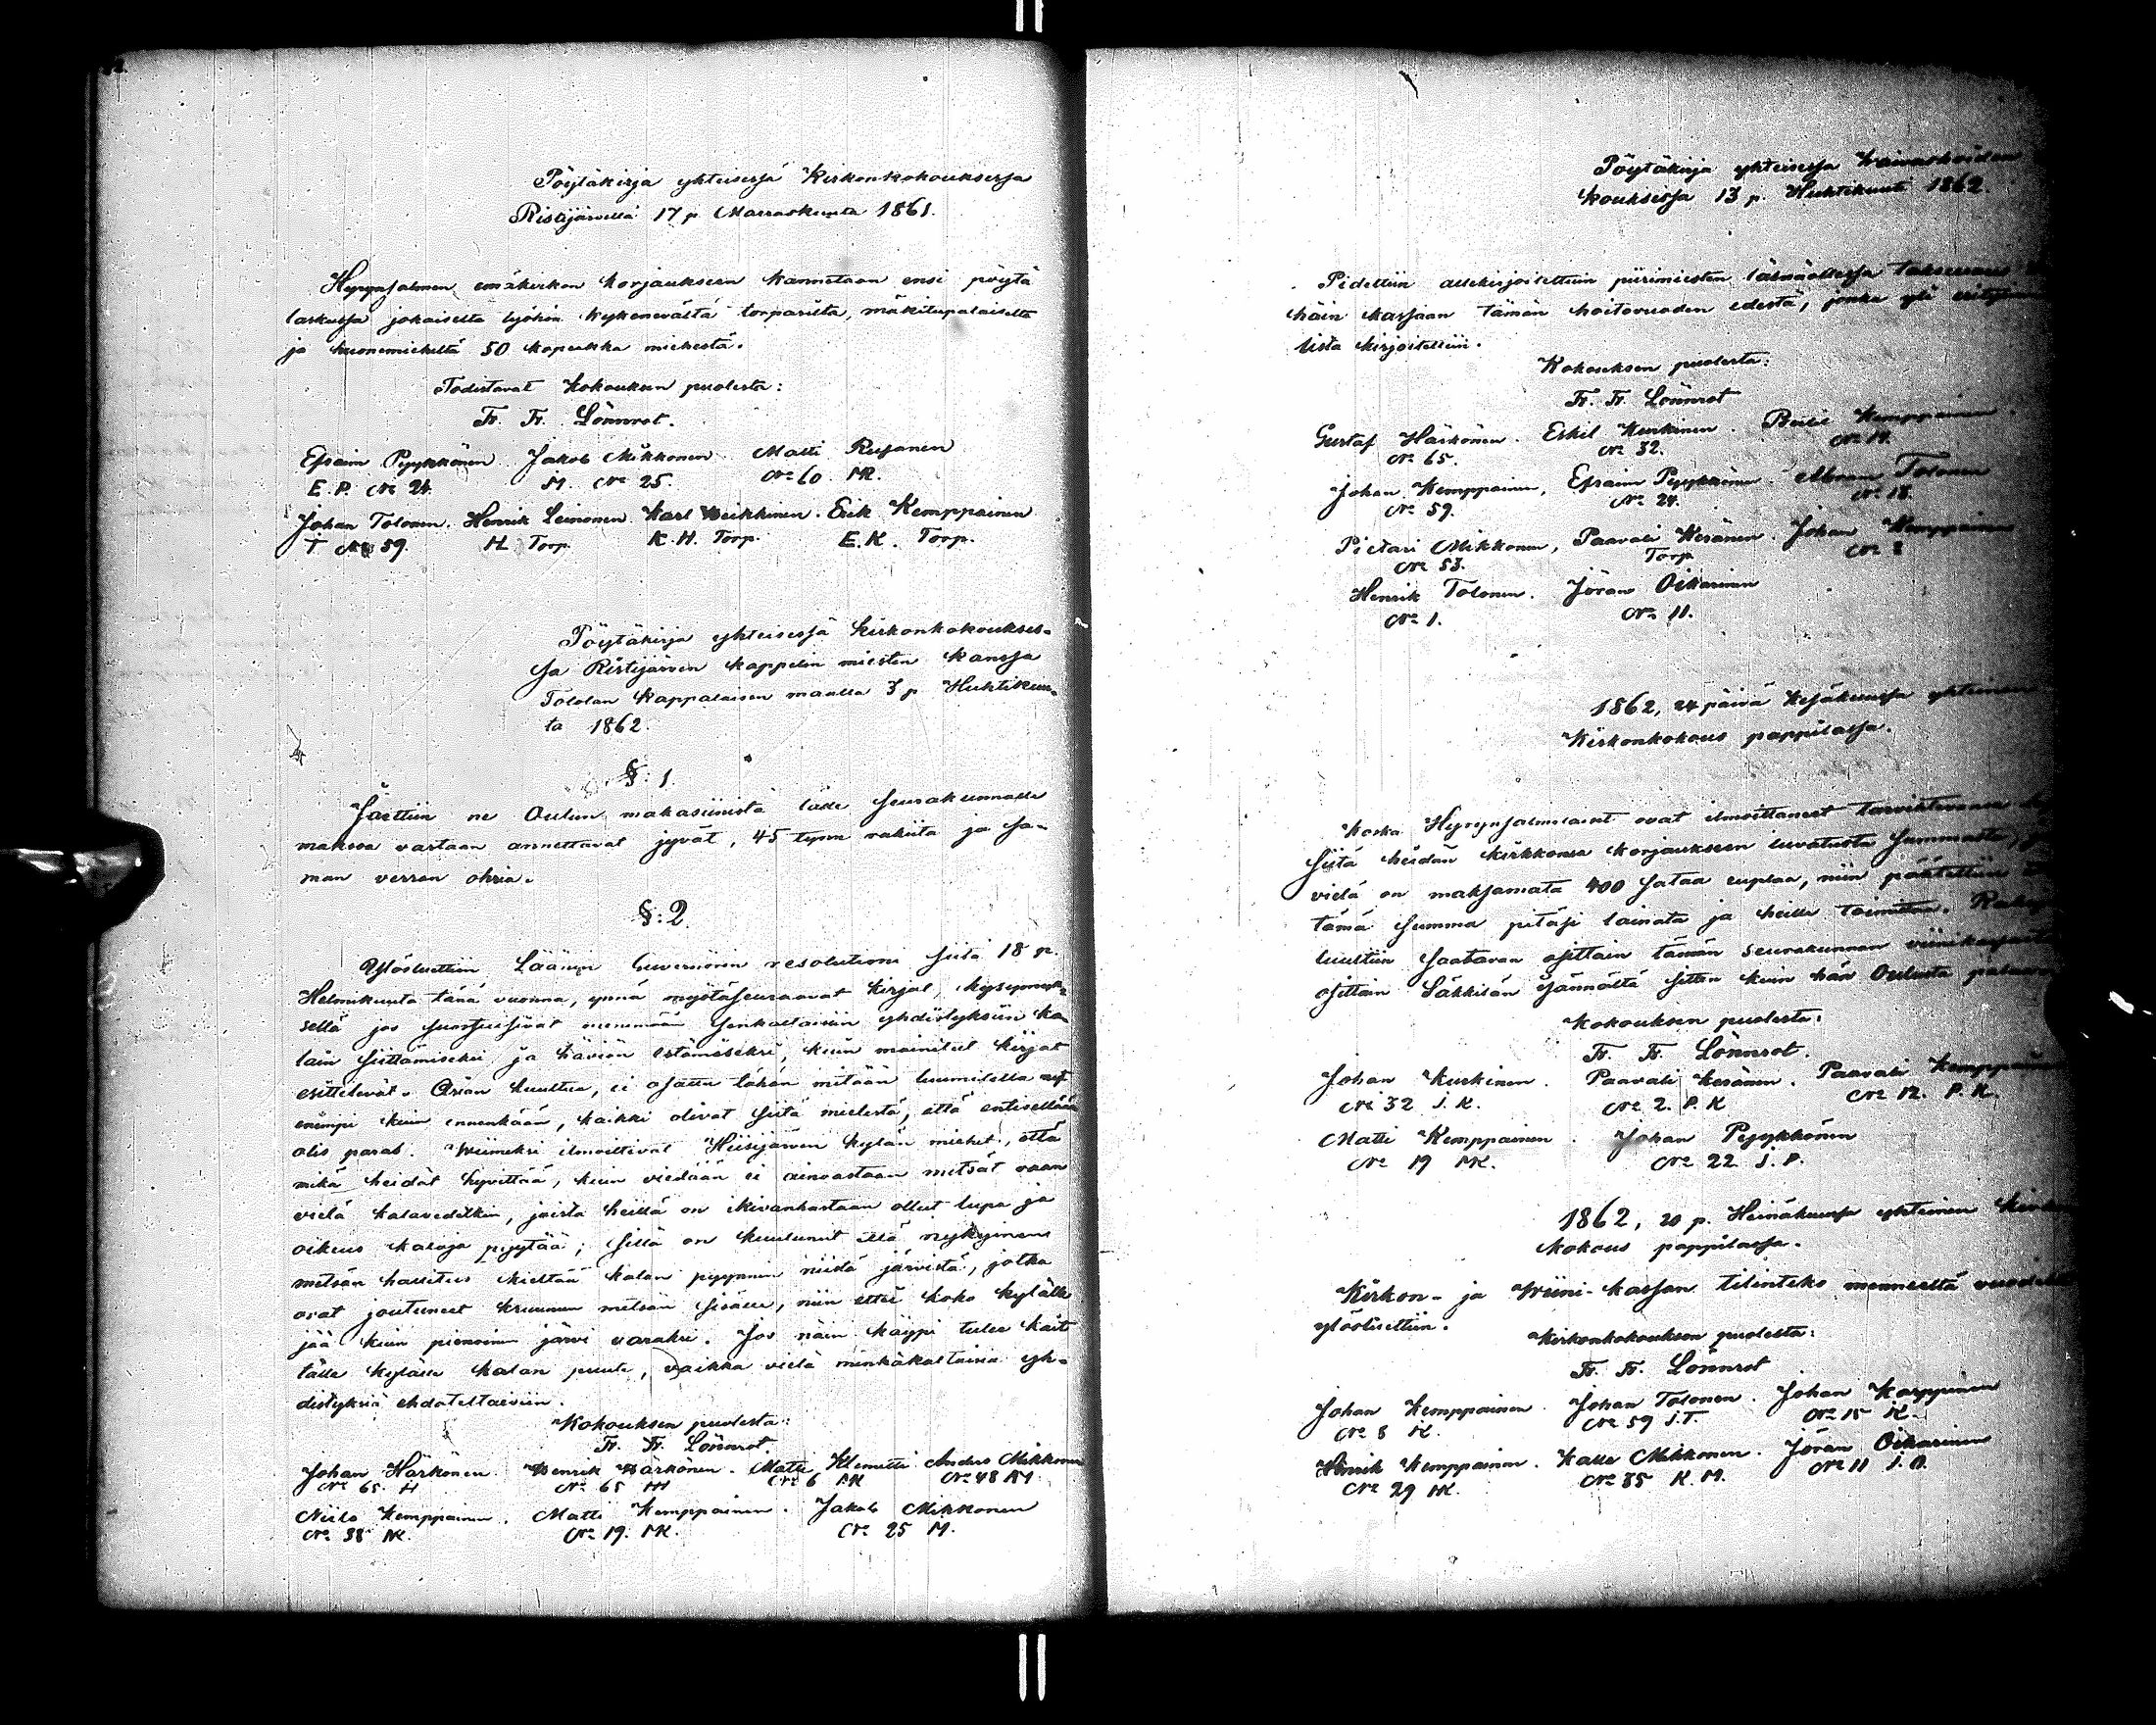 Pöytäkirja yhteisessä Kirkonkokouksessa
Ristijärvellä 17 p. Marraskuuta 1861.
Hyrynsalmen emäkirkon korjaukseen kannetaan ensi pöytä
laskussa jokaiselta työhön kykenevältä torparilta, mäkitupalaiselta
ja huonemieheltä 50 kopeekka miehestä.
Todistavat Kokouksen puolesta:
Fr. Fr. Lönnrot.
Efraim Pyykkönen Jakob Mikkonen Matti
E. P. No 24. M. No 25. No 60. MR.
Johan Tolonen. Henrik Leinonen. Karl Heikkinen. Erik Kemppainen
T No 59. H Torp. K. H. Torp. E. K. Torp.
Pöytäkirja yhteisessä kirkonkokoukses-
sa Ristijärven kappelin miesten kanssa
Tololan Kappalaisen maalla 3 p. Huhtikuu-
ta 1862.
§: 1.
ne Oulun makasiinista tälle seurakunnalle
maksoa vastaan annettavat jyvät, 45 tynn rukiita ja sa-
man verran ohria.
§: 2.
Ylösluettiin Läänin Guvernörin resolutioni siitä 18 p.
Helmikuuta tänä vuonna, ynnä myötäseuraavat kirjat, kysymyk-
sellä jos suostuisivat menemään senkaltaisiin yhdistyksiin ka-
lain siittämiseksi ja häviön estämiseksi, kuin mainitut kirjat
esittelevät. Asian kuultua, ei osattu tähän mitään luumitella
enempi kuin ennenkään, kaikki olivat siitä mielestä, että entisellään
olis paras. Wiimeksi ilmoittivat Hiisijärven kylän miehet, että
mikä heidät hyvittää, kuin viedään ei ainoastaan metsät vaan
vielä kalavedetkin, joista heillä on ikivanhastaan ollut lupa ja
oikeus kaloja pyytää; sillä on kuulunut että nykyinen
metsän hallitus kieltää kalan pyynnin niistä järvistä, jotka
ovat joutuneet kruunun metsän sisälle, niin ettei koko kylälle
jää kuin pienoinen järvi varaksi. Jos näin käypi tulee kait
tälle kylälle kalan puute, vaikka vielä minkäkaltaisia yh-
distyksiä ehdoteltaisiin.
Kokouksen puolesta:
Fr. Fr. Lönnrot.
Johan Härkönen. Henrik Härkönen. Matti Klemetti Anders Mikkonen
No 65. H No 65 HH No 6 MK No 48 AM.
Niilo Kemppainen. Matti Kemppainen. Jakob Mikkonen
No 38 NK. No 19. MK. No 25 M.
Pöytäkirja yhteisessä Waivashoidon
kouksessa 13 p. Huhtikuuta 1862.
Pidettiin allekirjoitettuin piirimiesten läsnäollessa takseeraus
häin kassaan tämän hoitovuoden edestä, jonka yli
lista kirjoitettiin.
Kokouksen puolesta:
Fr. Fr. Lönnrot
Gustaf Härkönen. Eskil Kurkinen. Kemppainen.
No 65. No 32. No 14.
Johan Kemppainen, Efraim Pyykkönen Abram Tolonen
No 59. No 24. No 18.
Pietari Mikkonen, Paavali Keränen. Johan Kemppainen
No 53. Torp No 8
Henrik Tolonen. Jöran Oikarinen
No 1. No 11.
1862, 24 päivä Kesäkuussa yhteinen
Kirkonkokous pappilassa.
Koska Hyrynsalmelaiset ovat ilmoittaneet tarvitsevansa
siitä heidän kirkkonsa korjaukseen luvatusta summasta,
vielä on maksamata 400 sataa ruplaa, niin päätettiin
tämä summa pitäisi lainata ja heille toimittaa.
luultiin saatavan osittain tämän seurakunnan
osittain Säkkisän Jännältä sitten kuin hän Oulusta palaa
Kokouksen puolesta:
Fr. Fr. Lönnrot.
Johan Kurkinen. Paavali Keränen. Paavali Kemppainen
No 32 J. K. No 2. P. K No 12. P. K.
Matti Kemppainen. Johan Pyykkönen
No 19 MK. No 22 J. P.
1862, 20 p. Heinäkuussa yhteinen
kokous pappilassa.
Kirkon- ja Wiini-kassan tilinteko menneeltä
ylösluettiin.
Kirkonkokouksen puolesta:
Fr. Fr. Lönnrot
Johan Kemppainen. Johan Tolonen. Johan Karppinen
No 8 K. No 59 J. T. No 15 K.
Henrik Kemppainen. Kalle Mikkonen. Jöran Oikarinen
No 29 HK. No 35 K. M. No 11 J. O.